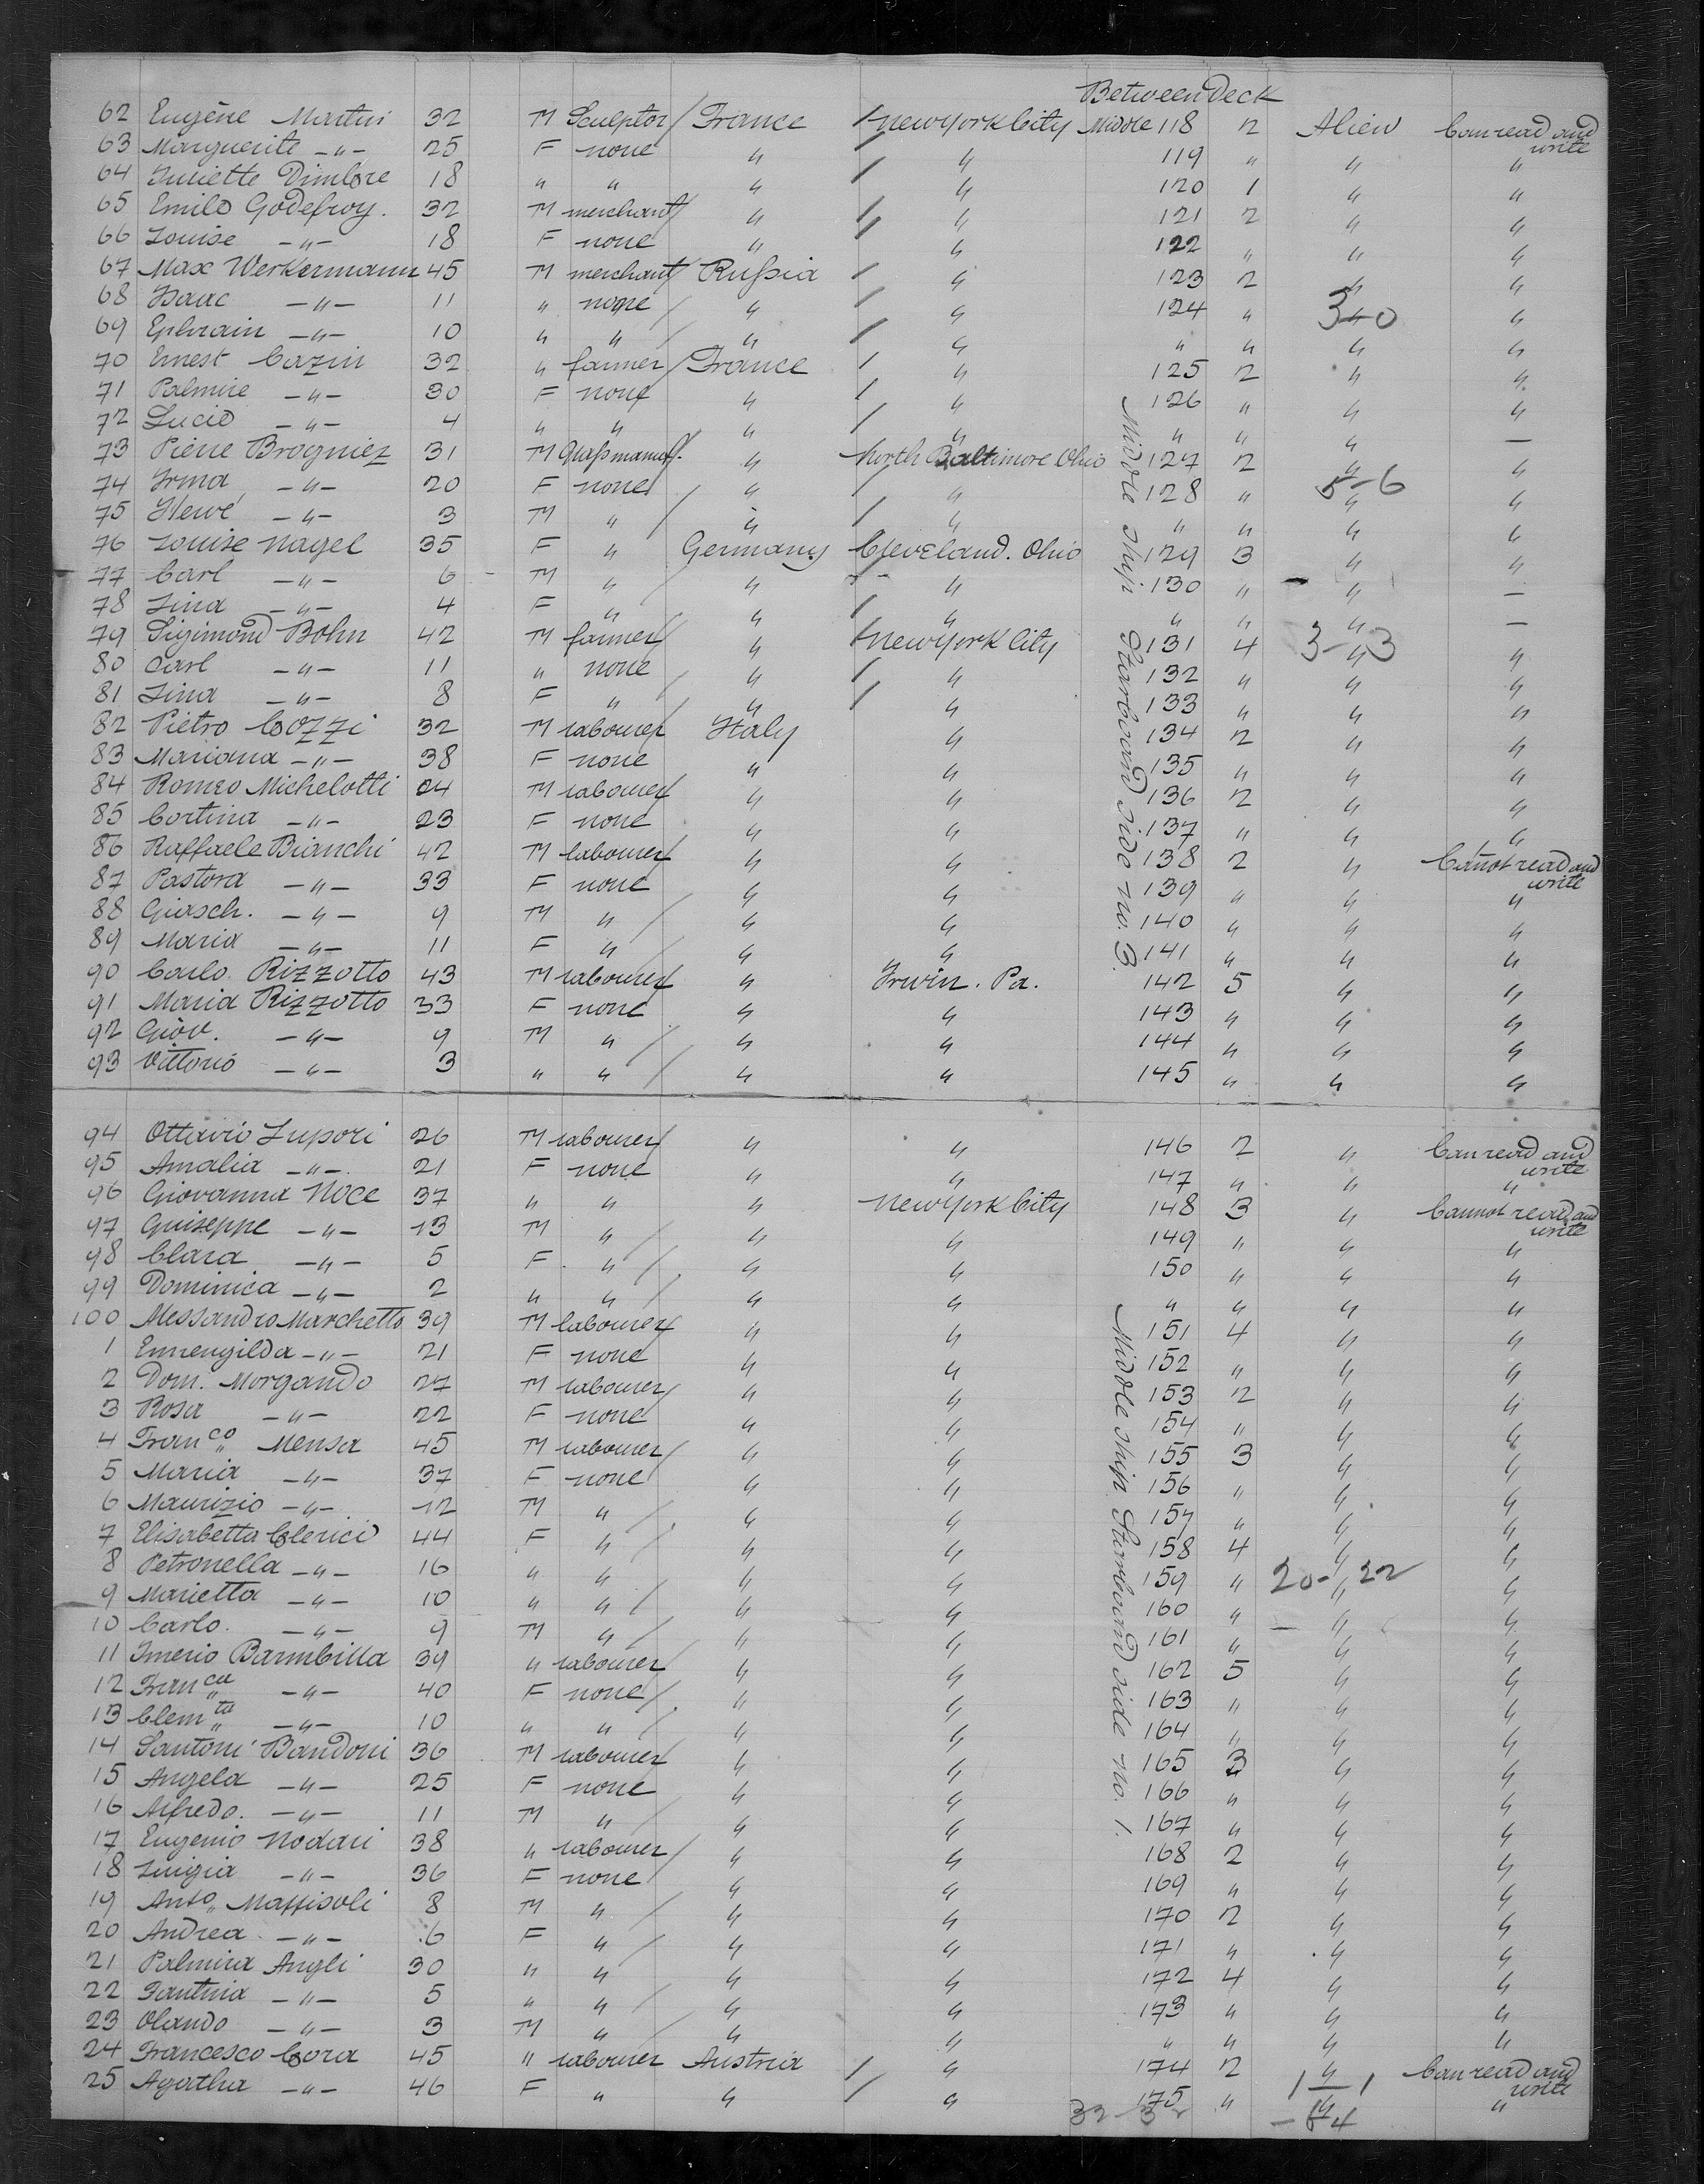 Between Deck
62 Eugène Martin 32 M Sculptor France New York City Middle 118 2 Alien Can read and write
63 Marguerite -"- 25 F none " " 119 " " "
64 Juliette Dimbre 18 " " " " 120 1 " "
65 Emile Godefroy. 32 M merchant " " 121 2 " "
66 Louise -"- 18 F none " " 122 " " "
67 Max Werkermann 45 M merchant Rußia " 123 2 " "
68 Isaac -"- 11 " none " " 124 " " 3-0 "
69 Ephrain -"- 10 " " " " " " " "
70 Ernest Cazin 32 " farmer France " 125 2 " "
71 Palmire -"- 30 F none " " 126 " " "
72 Lucie -"- 4 " " " " " " " —
73 Pierre Brogniez 31 M Glaßmanuf. " North Baltimore Ohio 127 2 " "
74 Irma -"- 20 F none " " 128 " " 5-6 "
75 Hervé -"- 3 M " " " " " " "
76 Louise Nagel 35 F " Germany Cleveland. Ohio 129 3 " "
77 Carl -"- 6 M " " " 130 " " —
78 Lina -"- 4 F " " " " " " —
79 Sigimond Bohn 42 M farmer " New York City 131 4 " 3-3 "
80 Carl -"- 11 " none " " 132 " " "
81 Lina -"- 8 F " " " 133 " " "
82 Pietro Cozzi 32 M labourer Italy " 134 2 " "
83 Mariana -"- 38 F none " " 135 " " "
84 Romeo Michelotti 24 M labourer " " 136 2 " "
85 Cortina -"- 23 F none " " 137 " " "
86 Raffaele Bianchi 42 M labourer " " 138 2 " Cañot read and write
87 Pastora -"- 33 F none " " 139 " " "
88 Giasch. -"- 9 M " " " 140 " " "
89 Maria -"- 11 F " " " 141 " " "
Middle ship Starboard side no. 3.
90 Carlo Rizzotto 43 M labourer " Irwin. Pa. 142 5 " "
91 Maria Rizzotto 33 F none " " 143 " " "
92 Giov. -"- 9 M " " " 144 " " "
93 Vittorio -"- 3 " " " " 145 " " "
94 Ottavio Lupori 26 M labourer " " 146 2 " Can read and write
95 Amalia -"- 21 F none " " 147 " " "
96 Giovanna Noce 37 " " " New York City 148 3 " Cannot read and write
97 Guiseppe -"- 13 M " " " 149 " " "
98 Clara -"- 5 F " " " 150 " " "
99 Dominica -"- 2 " " " " " " " "
100 Messandro Marchetto 39 M labourer " " 151 4 " "
1 Ennengilda -"- 21 F none " " 152 " " "
2 Dom. Morgando 27 M labourer " " 153 2 " "
3 Rosa -"- 22 F none " " 154 " " "
4 Franco Mensa 45 M labourer " " 155 3 " "
5 Maria -"- 37 F none " " 156 " " "
6 Maurizio -"- 12 M " " " 157 " " "
7 Elisabetta Clerici 44 F " " " 158 4 " "
8 Petronella -"- 16 " " " " 159 " " 20-22 "
9 Marietta -"- 10 " " " " 160 " " "
10 Carlo. -"- 9 M " " " 161 " " "
11 Imerio Barmbilla 39 " labourer " " 162 5 " "
12 Franca -"- 40 F none " " 163 " " "
13 Clemta -"- 10 " " " " 164 " " "
14 Santoni Bandoni 36 M labourer " " 165 3 " "
15 Angela -"- 25 F none " " 166 " " "
16 Alfredo. -"- 11 M " " " 167 " " "
Middle ship Starboard side no. 1.
17 Eugenio Nodari 38 " labourer " " 168 2 " "
18 Luigia -"- 36 F none " " 169 " " "
19 Anto Maffisoli 8 M " " " 170 2 " "
20 Andrea -"- 6 F " " " 171 " " "
21 Palmira Angli 30 " " " " 172 4 " "
22 Fantnia -"- 5 " " " " 173 " " "
23 Olando -"- 3 M " " " " " " "
24 Francesco Cora 45 " labourer Austria " 174 2 " Can read and write
25 Agatha -"- 46 F " " " 175 " " 1-1 "
32-32